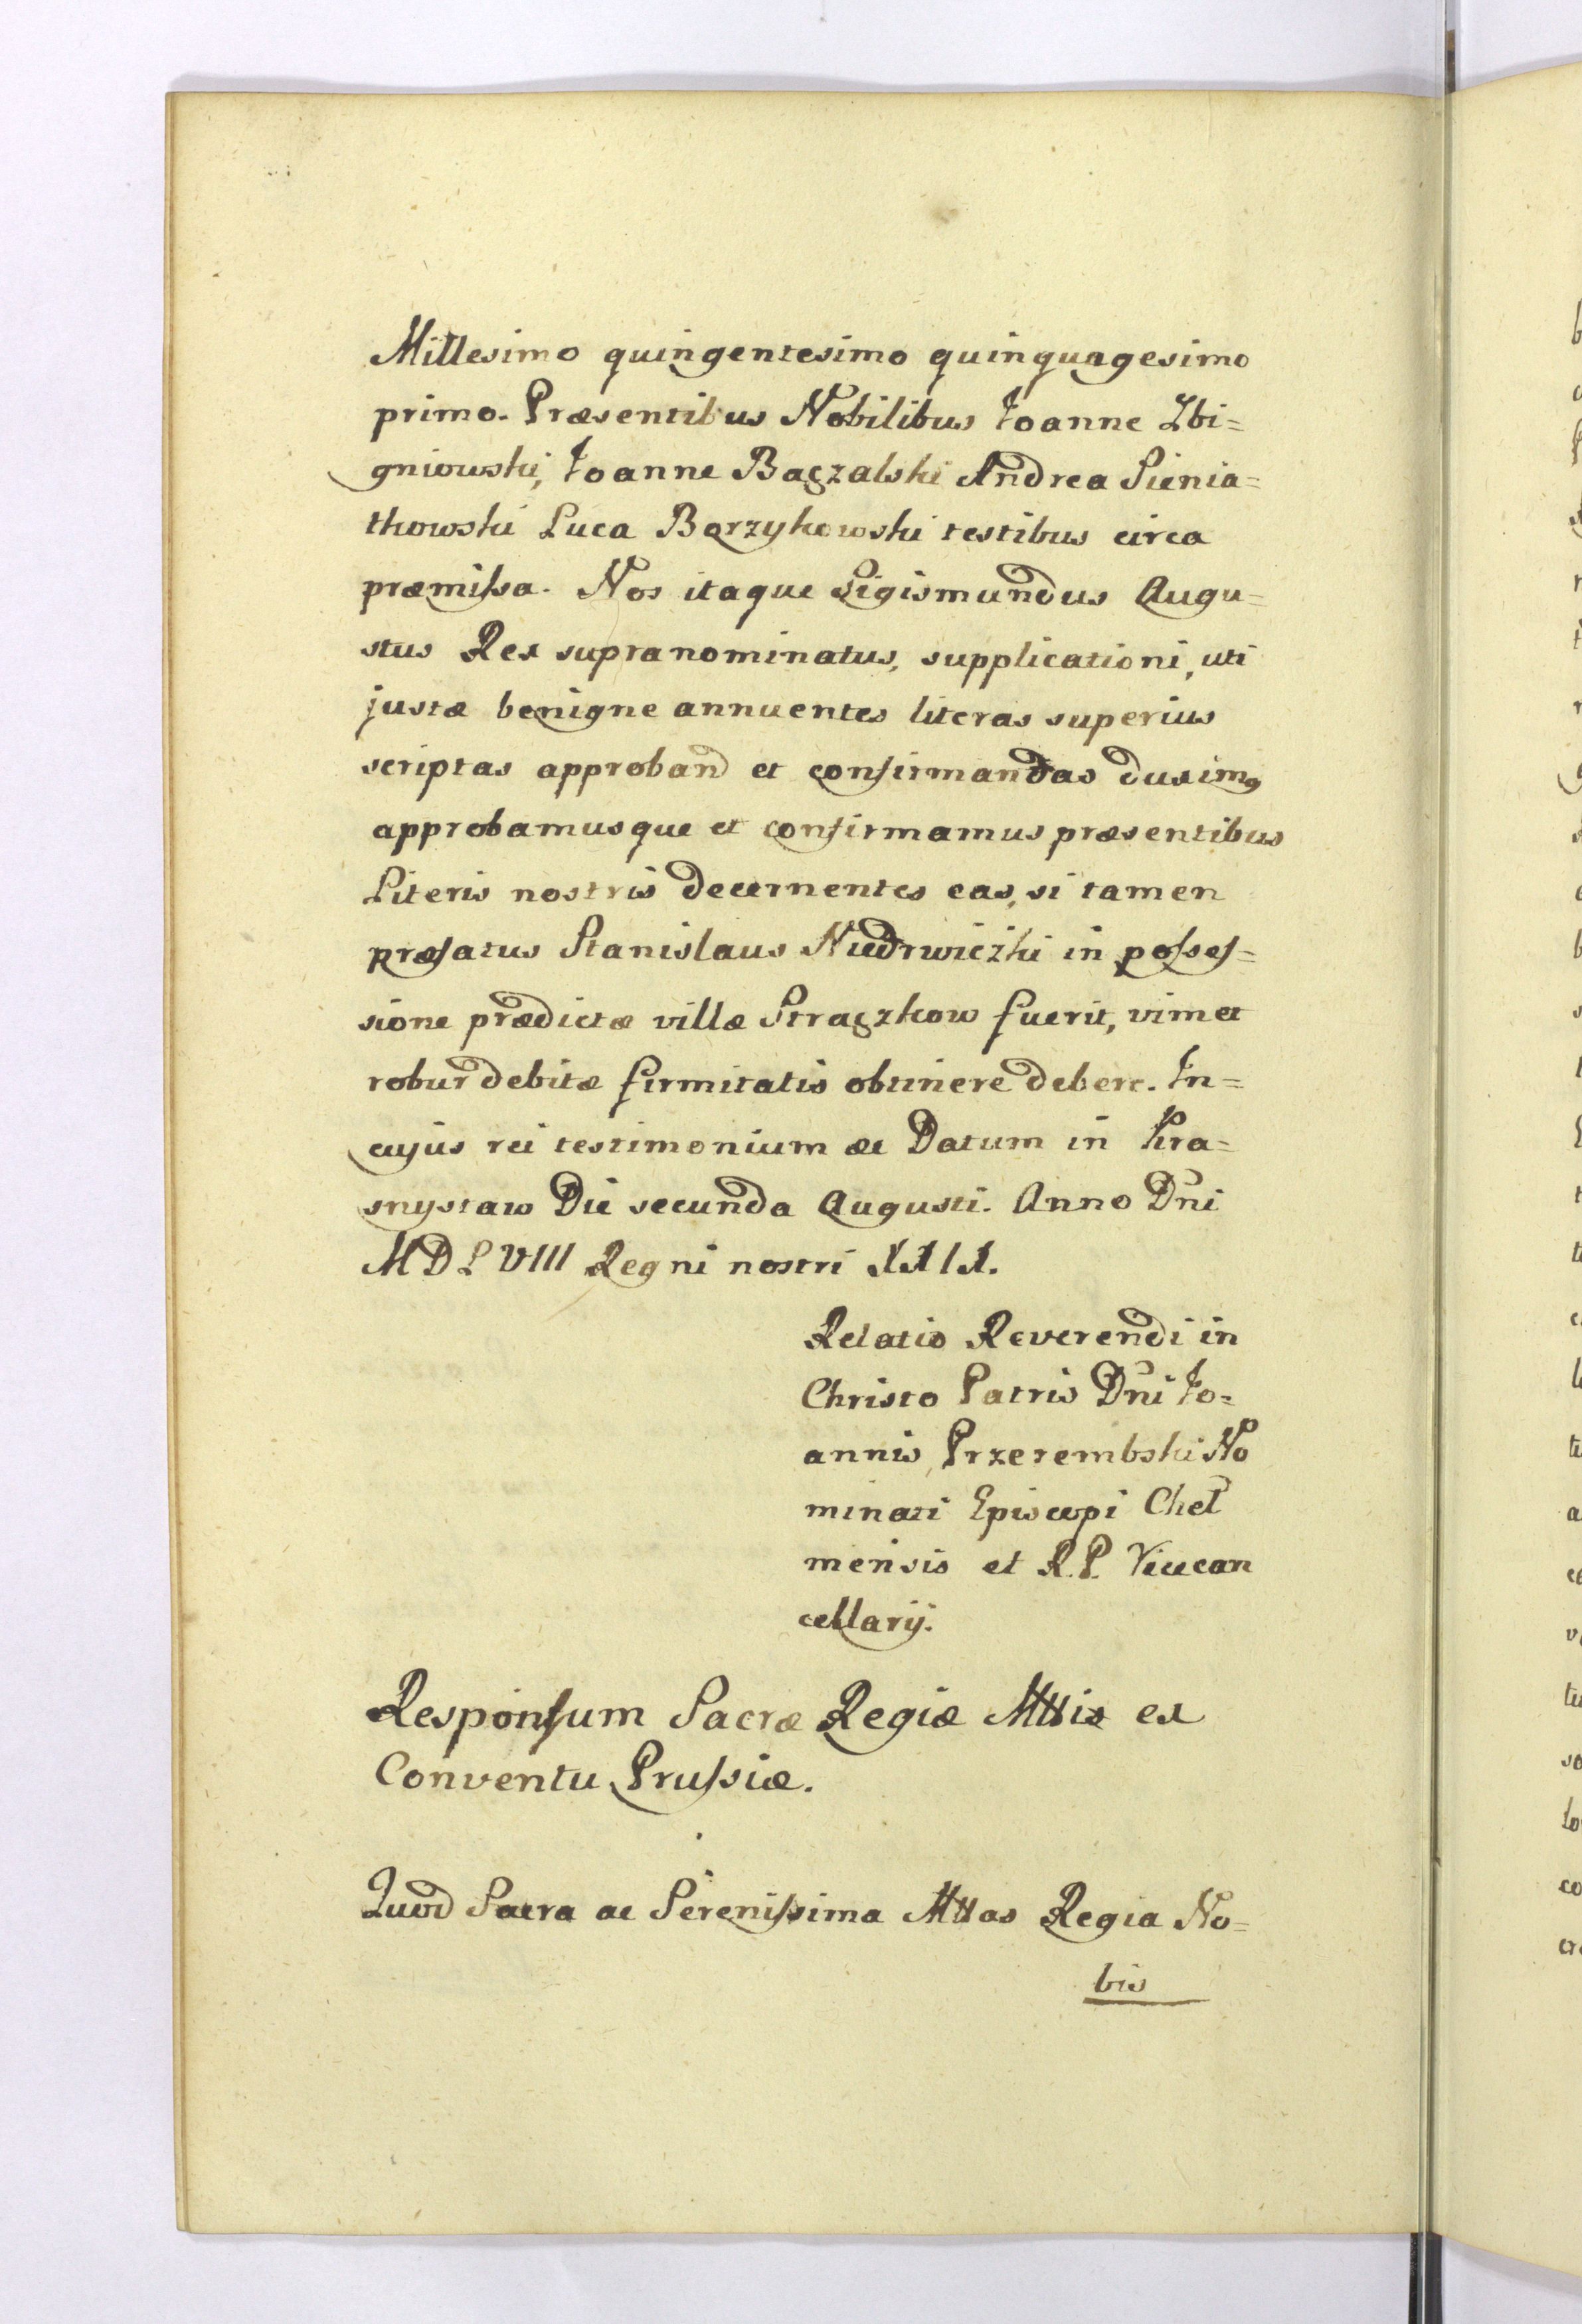 Millesimo quingentesimo quinquagesimo
primo. Præsentibus Nobilibus Joanne Zbi=
gniowski, Joanne Bączalski Andrea Sienia=
tkowski Luca Borzykowski testibus circa
præmissa. Nos itaque Sigismundus Augu=
stus Rex supranominatus, supplicationi, uti
justæ benigne annuentes literas superius
scriptas approband et confirmandas duximq
approbamusque et confirmamus præsentibus
Literis nostris decernentes eas, si tamen
præfatus Stanislaus Niedrwiczki in posses=
sione prædictæ villæ Strączkow fuerit, vim et
robur debitæ firmitatis obtinere debere. In=
cujus rei testimonium ac Datum in Kra=
snystaw Die secunda Augusti. Anno Dni
MDLVIII Regni nostri XXIX.
Relatio Reverendi in
Christo Patris Dni Jo=
annis Przerembski No
minati Episcopi Chel
mensis et R.P. Vicecan
cellarij.
Responsum Sacræ Regiæ Mttis ex
Conventu Prussiæ.
Quod Sacra ac Serenissima Mttas Regia No=
bis